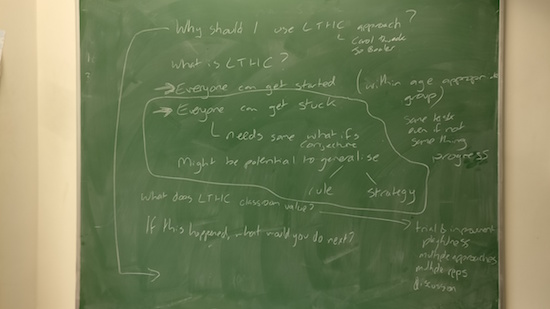 Why should I use LTHC approach?
Carol Dweck
Jo Boaler
What is LTHC?
→ Everyone can get started (within age appropriate
group)
→ Everyone can get stuck
needs some what ifs
conjecture
Might be potential to generalise
rule strategy
same task
even if not
same thing
progress
What does LTHC classroom value?
trial & improvement
playfulness
multiple approaches
multiple reps
discussion
If this happened, what would you do next?